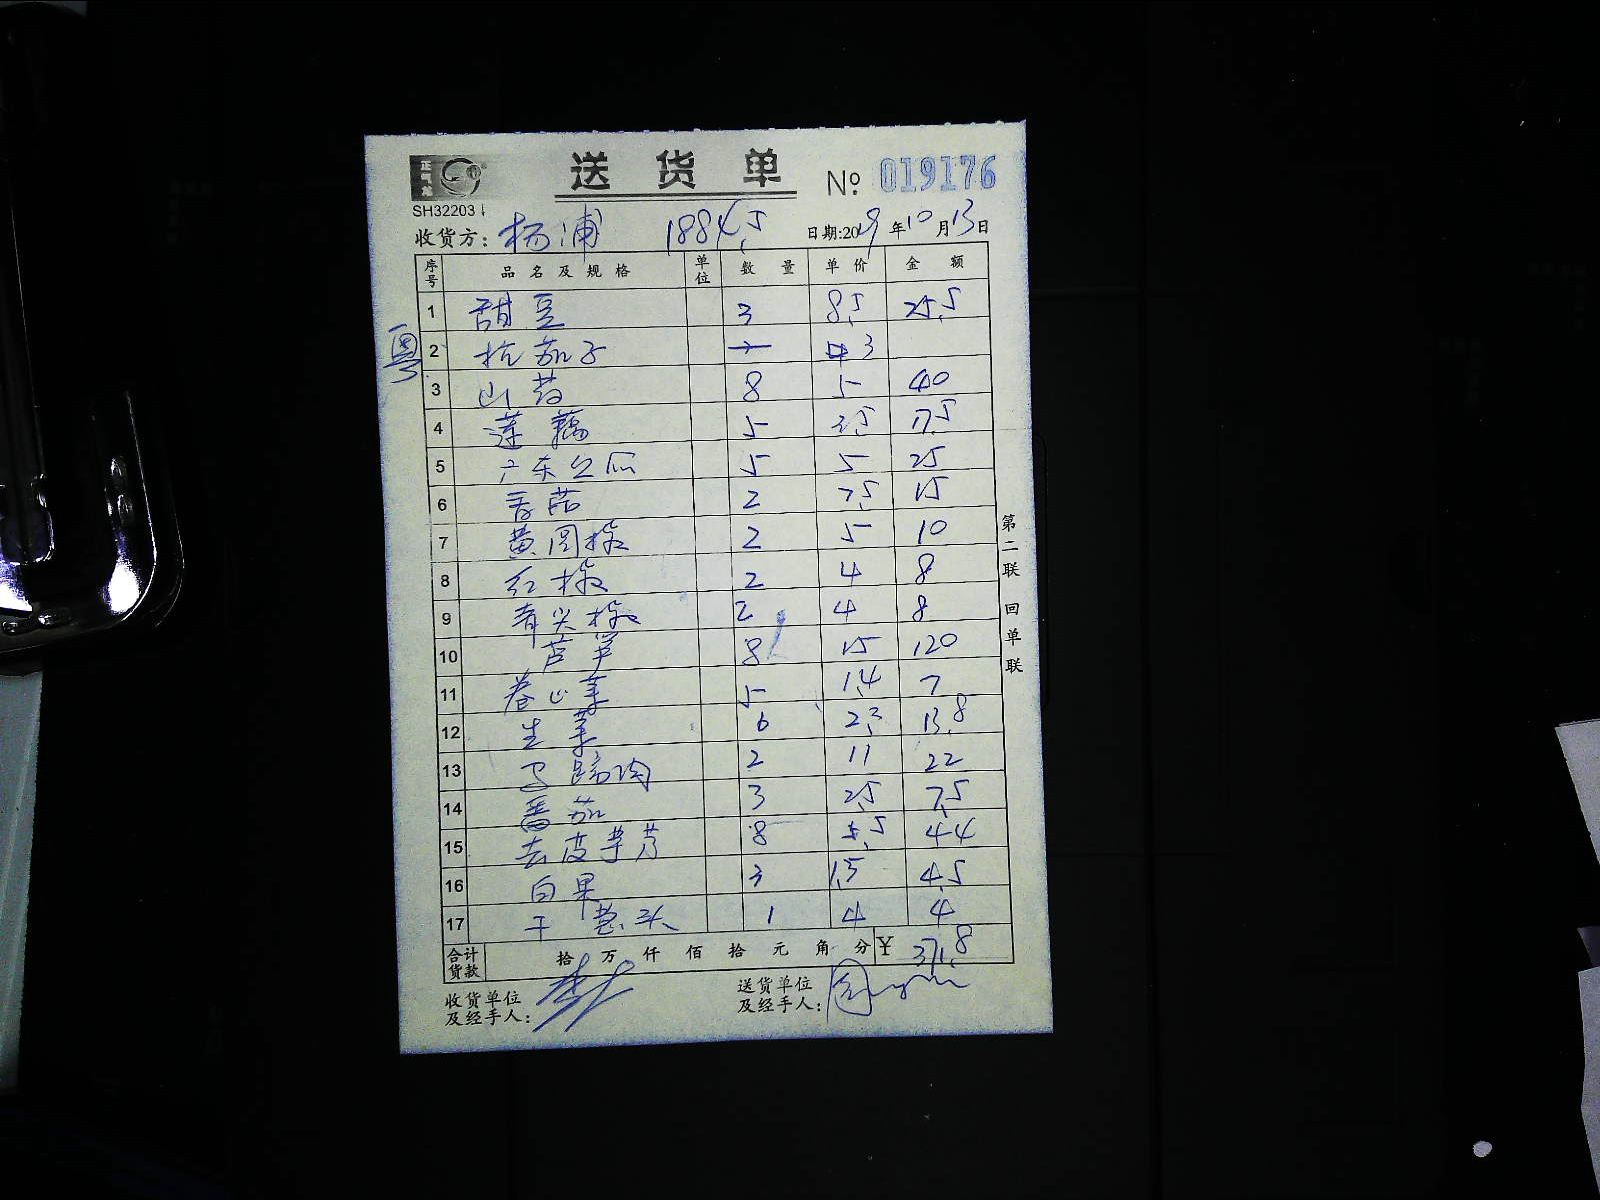 正气龙
送货单 № 019176
SH32203
收货方: 杨浦 1884.5 日期:2019年10月13日
序号 品名及规格 单位 数量 单价 金额
粤
1 甜豆 3 8.5 25.5
2 杭茄子 3
3 山药 8 5 40
4 莲藕 5 3.5 17.5
5 广东丝瓜 5 5 25
6 香菇 2 7.5 15
7 黄圆椒 2 5 10
8 红椒 2 4 8
9 青尖椒 2 4 8
10 芦笋 8 15 120
11 卷心菜 5 1.4 7
12 生菜 6 2.3 13.8
13 马蹄肉 2 11 22
14 番茄 3 2.5 7.5
15 去皮芋艿 8 5.5 44
16 白果 3 1.5 4.5
17 干葱头 1 4 4
合计货款 拾 万 仟 佰 拾 元 角 分 ¥ 371.8
收货单位及经手人:
送货单位及经手人:
第二联 回单联